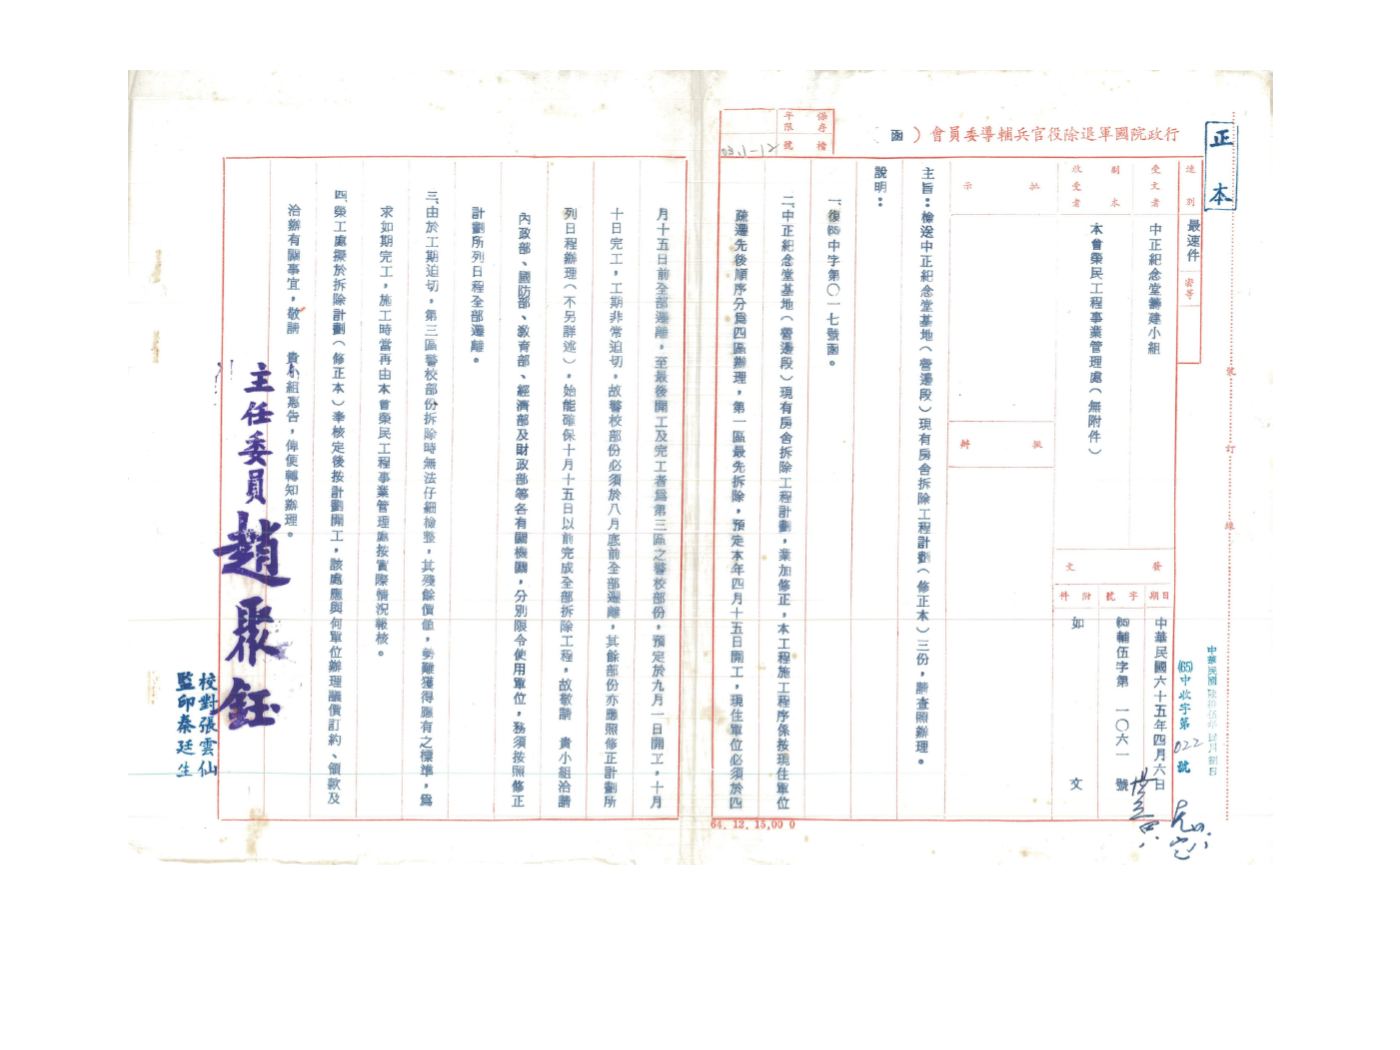 正本
行政院國軍退除役官兵輔導委員會（函）
保存年限
檔號
03.1-12
速別
最速件
密等
受文者
中正紀念堂籌建小組
副本收受者
本會榮民工程事業管理處（無附件）
批示
擬辦
發文
日期
中華民國六十五年四月六日
字號
(65)輔伍字第一〇六一號
附件
如文
(65)中收字第022號
主旨：檢送中正紀念堂基地（營邊段）現有房舍拆除工程計劃（修正本）三份，請查照辦理。
說明：
一、復(65)中字第〇一七號函。
二、中正紀念堂基地（營邊段）現有房舍拆除工程計劃，業加修正，本工程施工程序係按現住單位
疏遷先後順序分爲四區辦理，第一區最先拆除，預定本年四月十五日開工，現住單位必須於四
月十五日前全部遷離，至最後開工及完工者爲第三區之警校部份，預定於九月一日開工，十月
十日完工，工期非常迫切，故警校部份必須於八月底前全部遷離，其餘部份亦應照修正計劃所
列日程辦理（不另詳述），始能確保十月十五日以前完成全部拆除工程，故敬請　貴小組洽請
內政部、國防部、教育部、經濟部及財政部等各有關機關，分別限令使用單位，務須按照修正
計劃所列日程全部遷離。
三、由於工期迫切，第三區警校部份拆除時無法仔細檢整，其殘餘價值，勢難獲得應有之標準，爲
求如期完工，施工時當再由本會榮民工程事業管理處按實際情況報核。
四、榮工處擬於拆除計劃（修正本）奉核定後按計劃開工，該處應與何單位辦理議價訂約、領款及
洽辦有關事宜，敬請　貴小組惠告，俾便轉知辦理。
主任委員趙聚鈺
校對張雲仙
監印秦廷生
號
訂
線
64. 12. 15,00 0